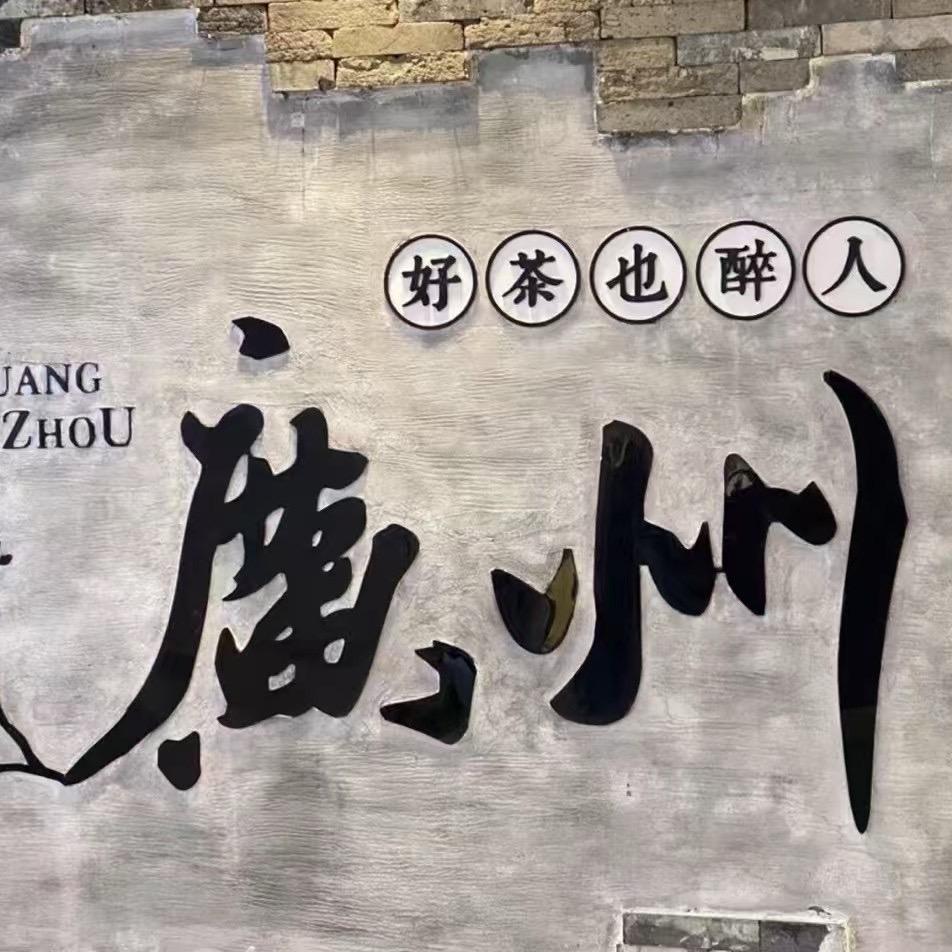 好茶也醉人
UANG
ZHOU
廣州